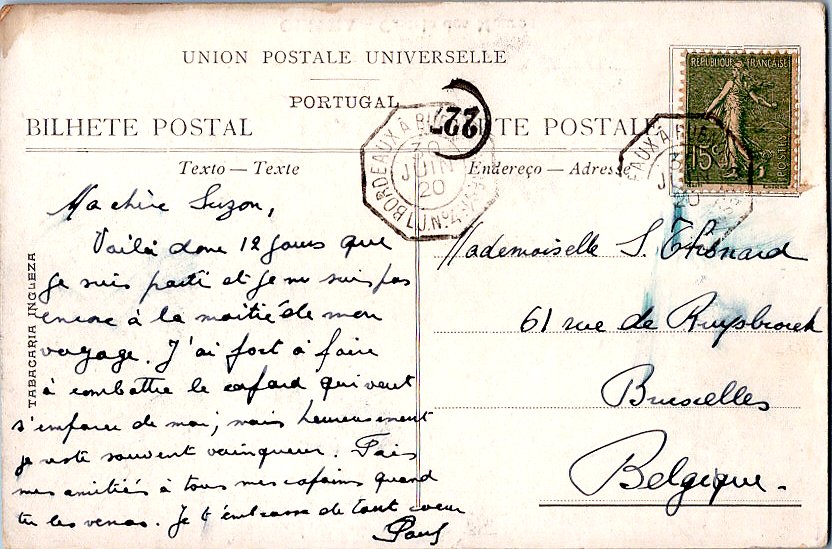 UNION POSTALE UNIVERSELLE
PORTUGAL
BILHETE POSTAL
CARTE POSTALE
Texto — Texte
Endereço — Adresse
RÉPUBLIQUE FRANÇAISE
15
POSTES
BORDEAUX À BUE
30
JUIN
20
L.J.N.º4
22
EAUX À BUE
20
TABACARIA INGLEZA
Ma chère Suzon,
Voilà donc 12 jours que
je suis parti et je ne suis pas
encore à la moitié de mon
voyage. J'ai fort à faire
à combattre le cafard qui veut
s'emparer de moi; mais heureusement
je reste souvent vainqueur. Fais
mes amitiés à tous mes copains quand
tu les verras. Je t'embrasse de tout coeur
Paul
Mademoiselle S. Thonard
61 rue de Ruysbroeck
Bruxelles
Belgique.